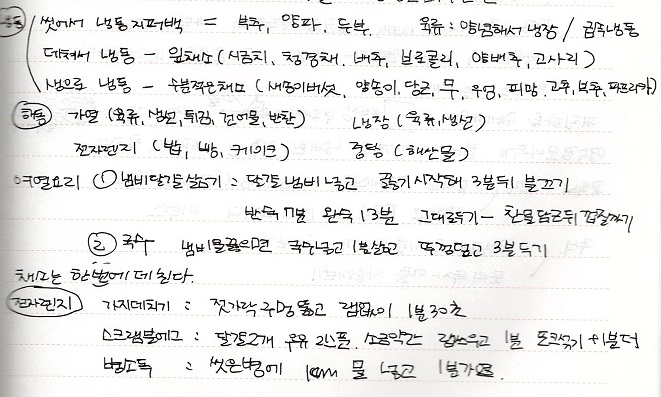 냉동 씻어서 냉동지퍼백 = 부추, 양파 두부. 육류 : 양념해서 냉장 / 급속냉동
데쳐서 냉동 - 잎채소 (시금치, 청경채, 배추, 브로콜리, 양배추, 고사리)
생으로 냉동 - 수분적은채소 (새송이버섯, 양송이, 당근, 무, 우엉, 피망, 고추, 부추, 파프리카)
해동 가열 (육류, 생선, 튀김, 건어물, 반찬) 냉장 (육류, 생선)
전자렌지 (밥, 빵, 케이크) 중탕 (해산물)
여열요리 ① 냄비달걀삶기 : 달걀 냄비 넣고 끓기 시작해 3분뒤 불끄기
반숙 7분 완숙 13분 그대로두기 - 찬물담근뒤 껍질까기
② 국수 냄비물끓으면 국수넣고 1분삶고 뚜껑덮고 3분두기
채소는 한번에 데친다.
전자렌지 가지데치기 : 젓가락 구멍뚫고 랩없이 1분 30초
스크램블에그 : 달걀2개 우유 2스푼. 소금약간 랩씌우고 1분 포크섞기 +1분더
병소독 : 씻은병에 1cm 물 넣고 1분가열.